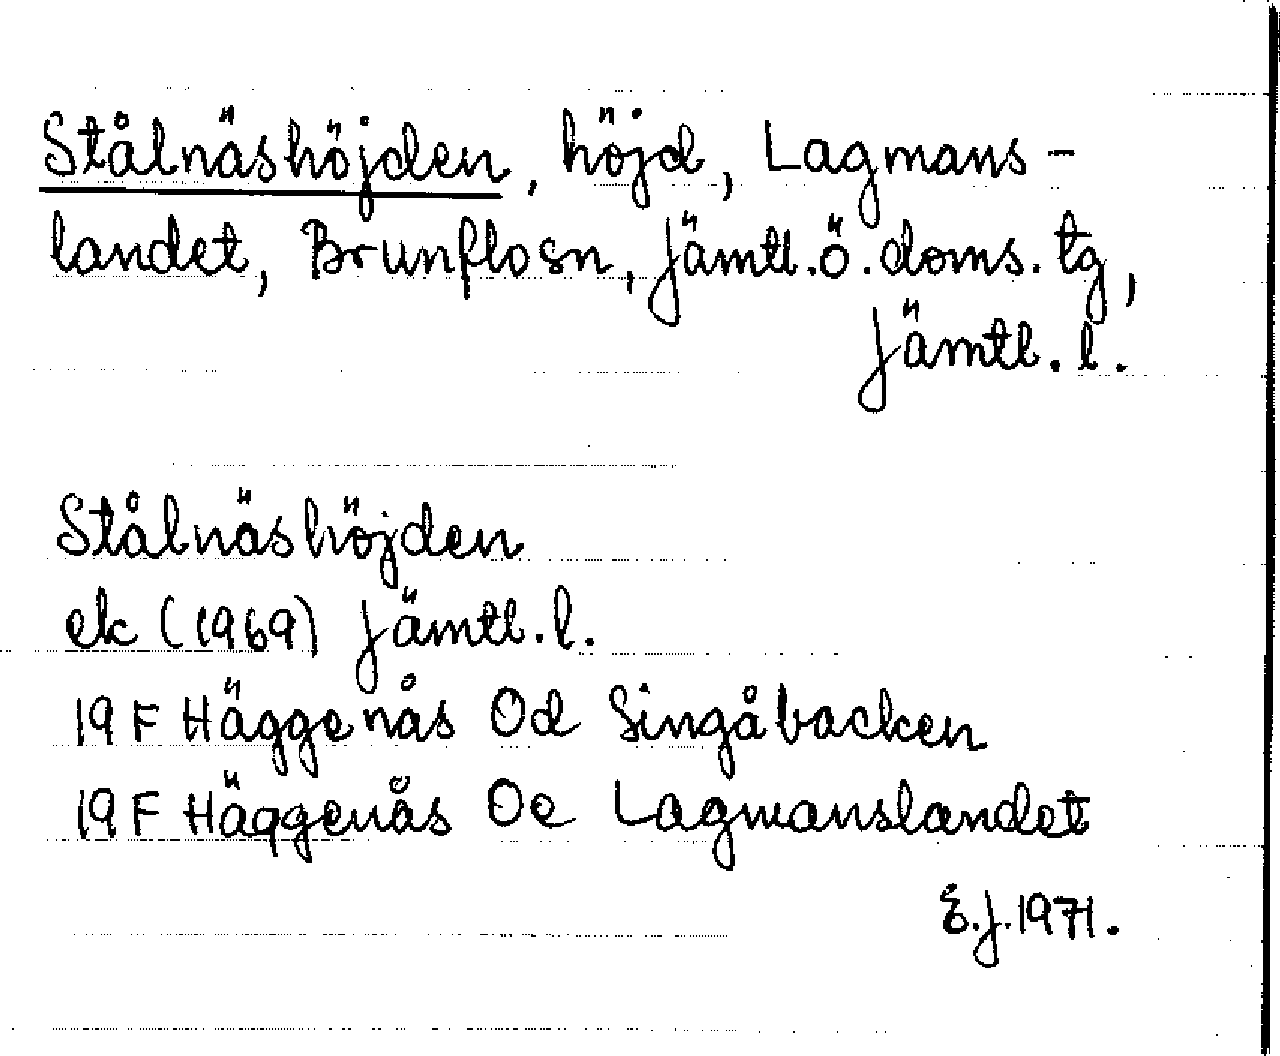 Stålnäshöjden, höjd, Lagmans-
landet, Brunflosn, Jämtl.ö.doms.tg,
Jämtl.l.
Stålnäshöjden
ek (1969) Jämtl.l.
19 F Häggenås Od Singåbacken
19 F Häggenås Oe Lagmanslandet
E.J.1971.